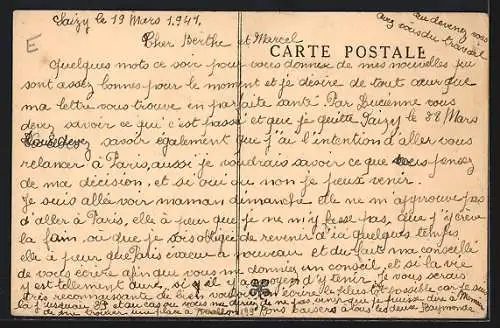 E
Saizy le 19 Mars 1941.
Cher Berthe et Marcel
CARTE POSTALE
Quelques mots ce soir pour vous donner de mes nouvelles qui
sont assez bonnes pour le moment et je désire de tout cœur que
ma lettre vous trouve en parfaite santé. Par Lucienne vous
devez savoir ce qui c'est passé et que je quitte Saizy le 28 Mars
devez savoir également que j'ai l'intention d'aller vous
relancer à Paris, aussi je voudrais savoir ce que vous pensez
de ma décision, et si oui ou non je peux venir.
Je suis allée voir maman dimanche elle ne m'approuve pas
d'aller à Paris, elle à peur que je ne m'y fasse pas, que j'y crève
la faim, où que je sois obligée de revenir d'ici quelques temps,
elle à peur que Paris évacue à nouveau et du fait ma conseillé
de vous écrire afin que vous me donniez un conseil, et si la vie
y est tellement dure, si il y a moyen d'y tenir je vous serais
très reconnaissante de bien vouloir m'écrire le plus tôt possible car je suis
là jusqu'au 29 etau cas ou vous me
de me trouver une place à
Bons baisers à tous les deux Raymonde
au devenez vous
avez vous du travail